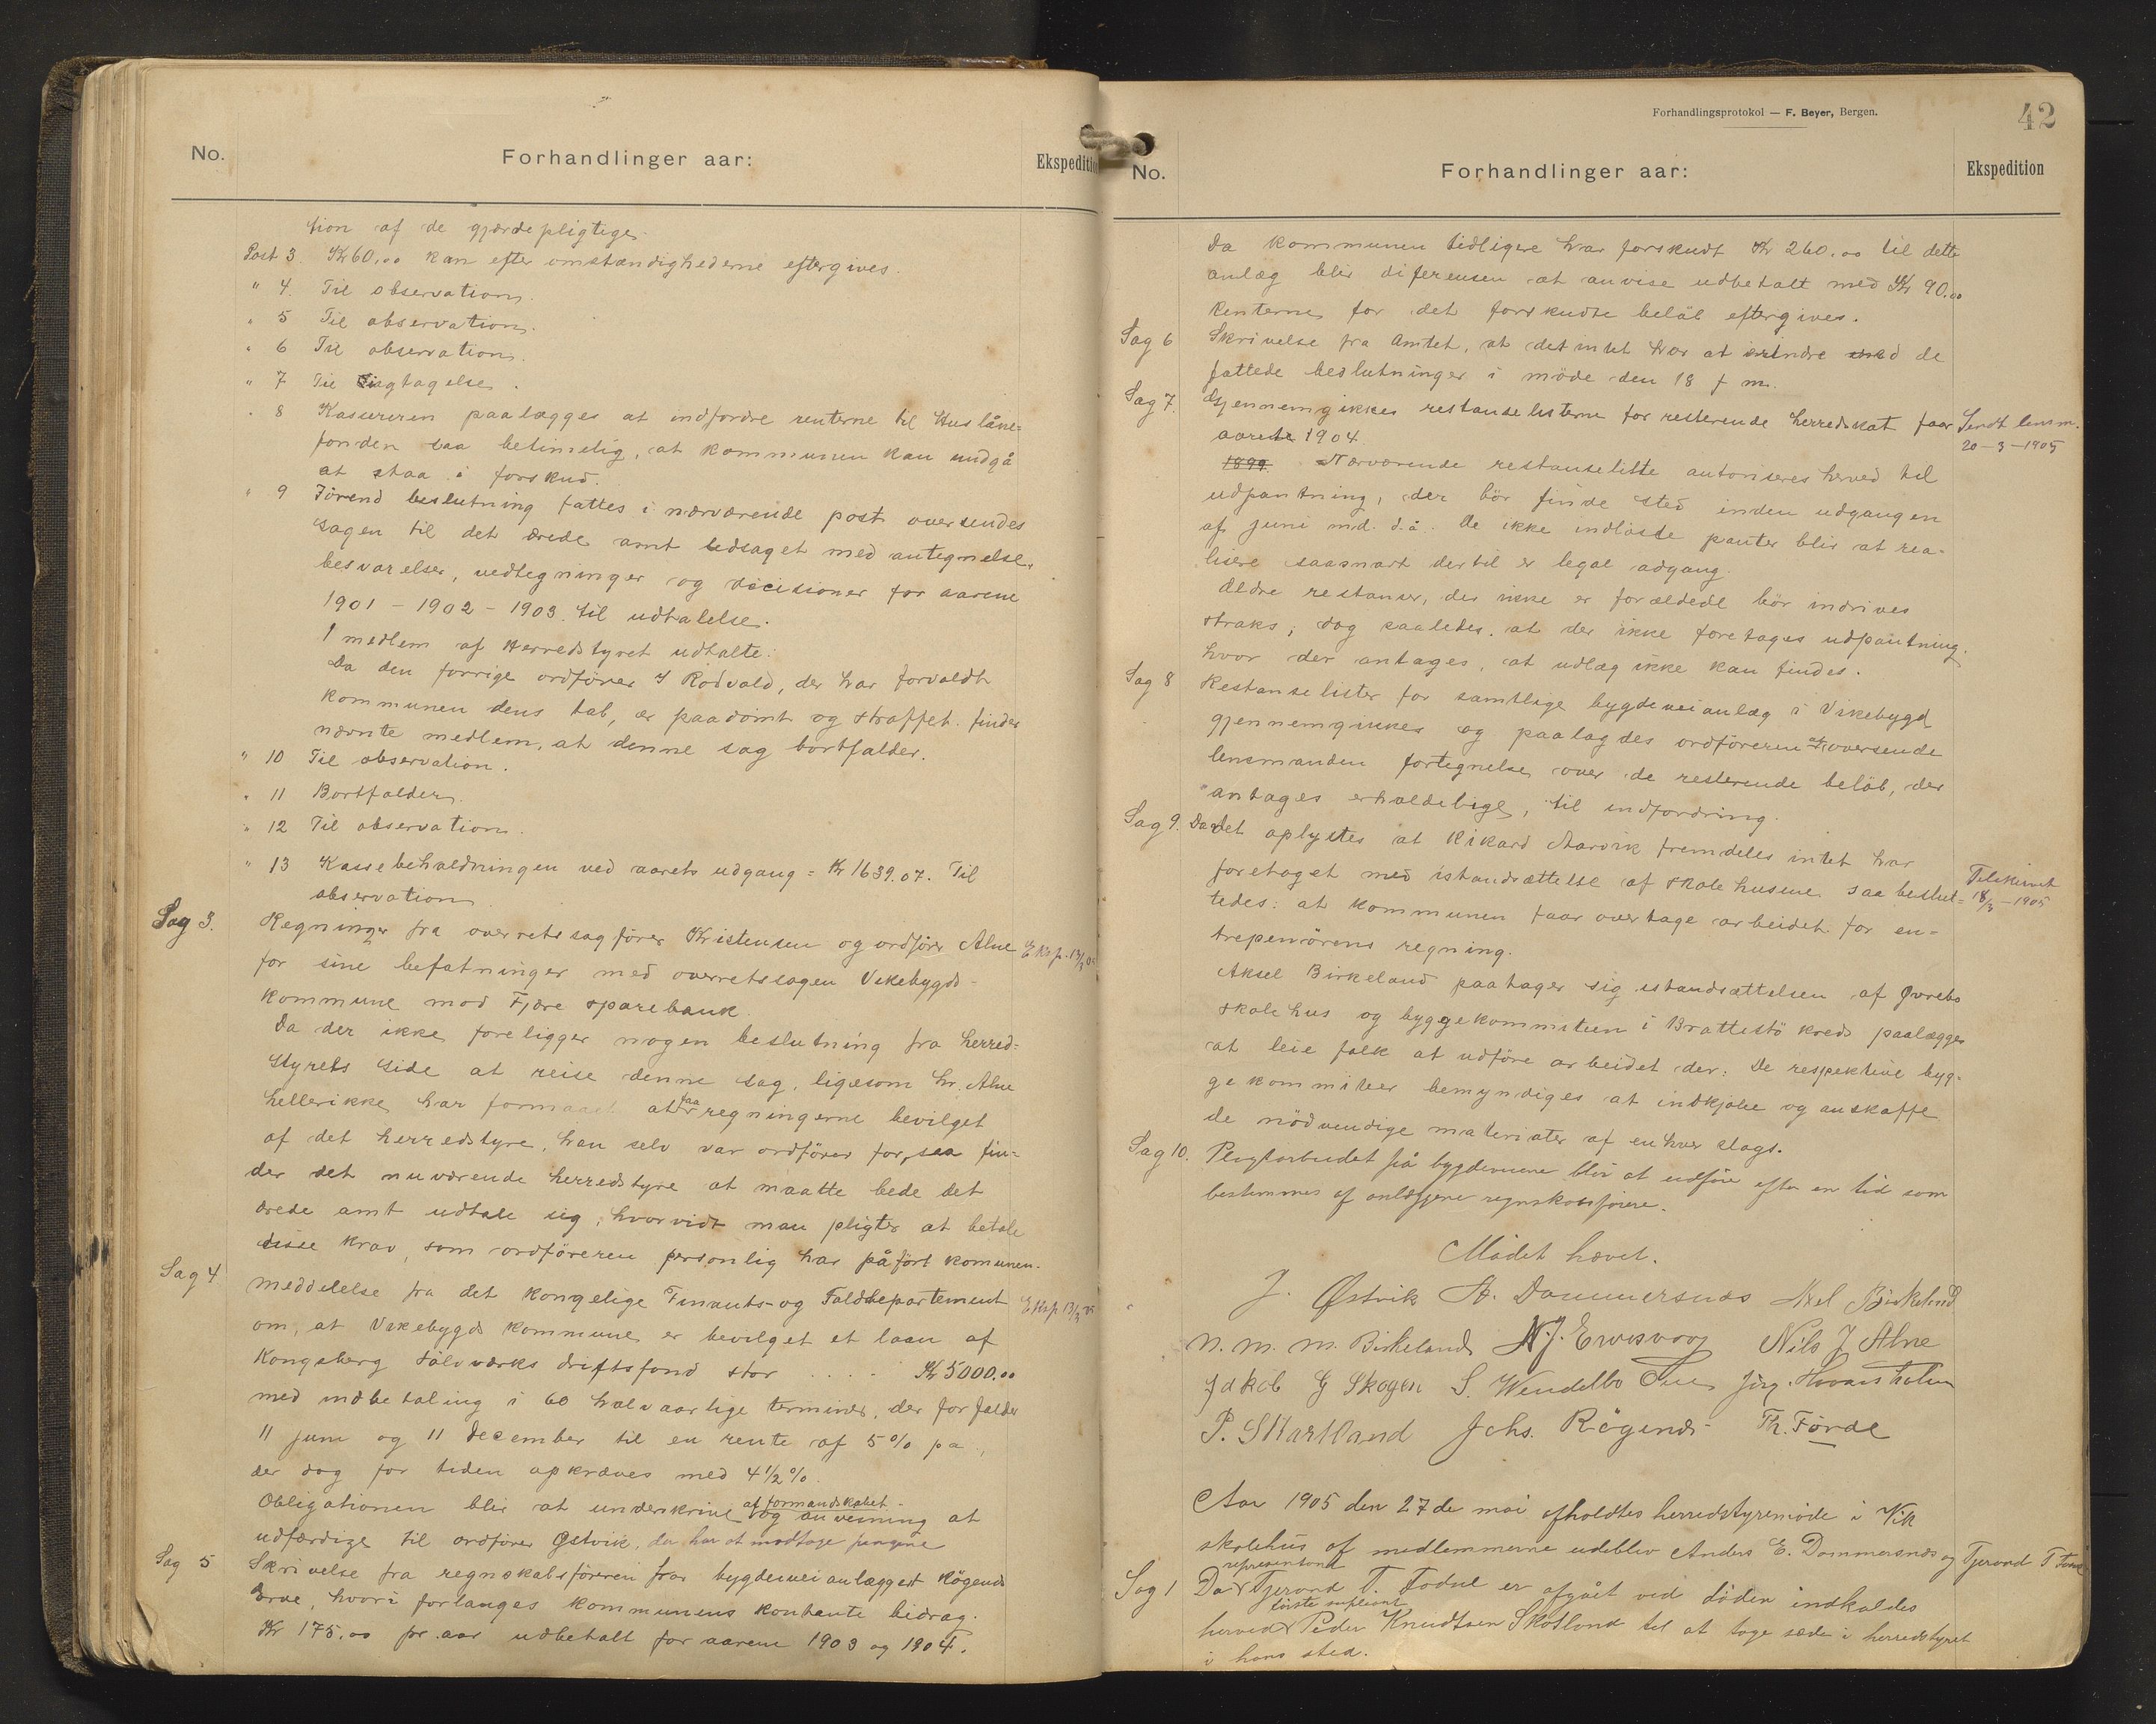 No.
Forhandlinger aar:
Ekspedition
tion af de gjærdepligtige.
Post 3. Kr 60.00 kan efter omstændighederne eftergives.
" 4. Til observation.
" 5 Til observation.
" 6 Til observation.
" 7 Til iagtagelse.
" 8 Kassereren paalægges at indfordre renterne til Huslåne=
fonden saa betimelig, at kommunen kan undgå
at staa i forskud.
" 9 Førend beslutning fattes i nærværende post oversendes
sagen til det ærede amt ledsaget med antegnelse,
besvarelser, vedtegninger og decisioner for aarene
1901 - 1902 - 1903. til udtalelse.
1 medlem af Herredstyret udtalte:
Da den forrige ordfører I Rödvald, der har forvoldt
kommunen dens tab, er paadömt og straffet. finder
nævnte medlem, at denne sag bortfalder.
" 10 Til observation.
" 11 Bortfalder.
" 12 Til observation.
" 13 Kassebeholdningen ved aarets udgang = Kr 1639.07. Til
observation
Sag 3. Regninger fra overretssagfører Kristensen og ordfører Alne Eksp. 13/3 05
for sine befatninger med overretssagen Vikebygds-
kommune mod Fjære sparebank.
Da der ikke foreligger nogen beslutning fra herred=
styrets side at reise denne sag, ligesom hr. Alne
hellerikke har formaaet at faa regningerne bevilget
af det herredstyre, han selv var ordförer for, saa fin=
der det nuværende herredstyre at maatte bede det
ærede amt udtale sig, hvorvidt man pligter at betale
disse krav, som ordföreren personlig har påfört komunen.
Sag 4 Meddelelse fra det kongelige Finants- og Tolddepartement Eksp 13/3 05
om, at Vikebygds kommune er bevilget et laan af
Kongsberg sølvværks driftsfond stor . . . . Kr 5000.00
med indbetaling i 60 halvaarlige terminer, der forfalder
11 juni og 11 december til en rente af 5% pa.,
der dog for tiden opkræves med 4 1/2 %.
Obligationen blir at underskrive af formandskabet og anvisning at
udfærdige til ordfører Østvik, der har at modtage pengene
Sag 5 Skrivelse fra regnskabsföreren for bygdeveianlægget Rögends
Ørve, hvori forlanges kommunens kontante bidrag.
Kr 175.00 pr. aar udbetalt for aarene 1903 og 1904.
Forhandlingsprotokol — F. Beyer, Bergen.
42
No.
Forhandlinger aar:
Ekspedition
Da kommunen tidligere har forskudt Kr 260.00 til dette
anlæg blir diferensen at anvise udbetalt med Kr 90.00
Renterne for det forskudte beløb eftergives.
Sag 6 Skrivelse fra Amtet, at det intet har at erindre mod de
fattede beslutninger i möde den 18 f m.
Sag 7. Gjennemgikkes restanselisterne for resterende herredskat for Sendt lensm.
aarene 1904. 20-3-1905
1899. Nærværende restanseliste autoriseres herved til
udpantning, der bör finde sted inden udgangen
af juni md. d.å. De ikke indløste panter blir at rea-
lisere saasnart dertil er legal adgang.
Ældre restanser, der ikke er forældede bör indrives
straks, dog saaledes, at der ikke foretages udpantning.
hvor der antages, at udlæg ikke kan findes.
Sag 8 Restanselister for samtlige bygdeveianlæg i Vikebygd
gjennemgikkes og paalagdes ordföreren at oversende
lensmanden fortegnelse over de resterende beløb, der
antages erholdelige, til indfordring.
Sag 9. Da det oplystes at Rikard Aarvik fremdeles intet har
foretaget med istandsættelse af skolehusene saa beslut= Tilskrevet
tedes: at kommunen faar overtage arbeidet for en= 18/3-1905
trepenörens regning.
Aksel Birkeland paatager sig istandsættelsen af Øvrebö
skolehus og byggekommiteen i Brattestö kreds paalægges
at leie folk at udföre arbeidet der: De respektive byg-
gekommiteer bemyndiges at indkjöbe og anskaffe
de nödvendige materialer af enhver slags.
Sag 10. Pligtarbeidet på bygdeveiene blir at udföre efter en tid som
bestemmes af anlæggene regnskabsførere.
Mödet hævet.
J. Østvik A. Dommersnæs Aksel Birkeland
N. M. M. Birkeland N. J. Ervesvaag Nils J Alne
Jakob G Skogen S. Wendelbo
P. S Hartland Johs. Rögends Th. Förde
Aar 1905 den 27de mai afholdtes herredstyremöde i Vik
skolehus af medlemmerne udeblev Anders E. Dommersnæs og Tjerand T Forde
Sag 1 Da representant Tjerand T. Fodne er afgået ved döden indkaldes
herved 1ste suplieant Peder Knudtsen Skotland til at tage sæde i herredstyret
i hans sted.